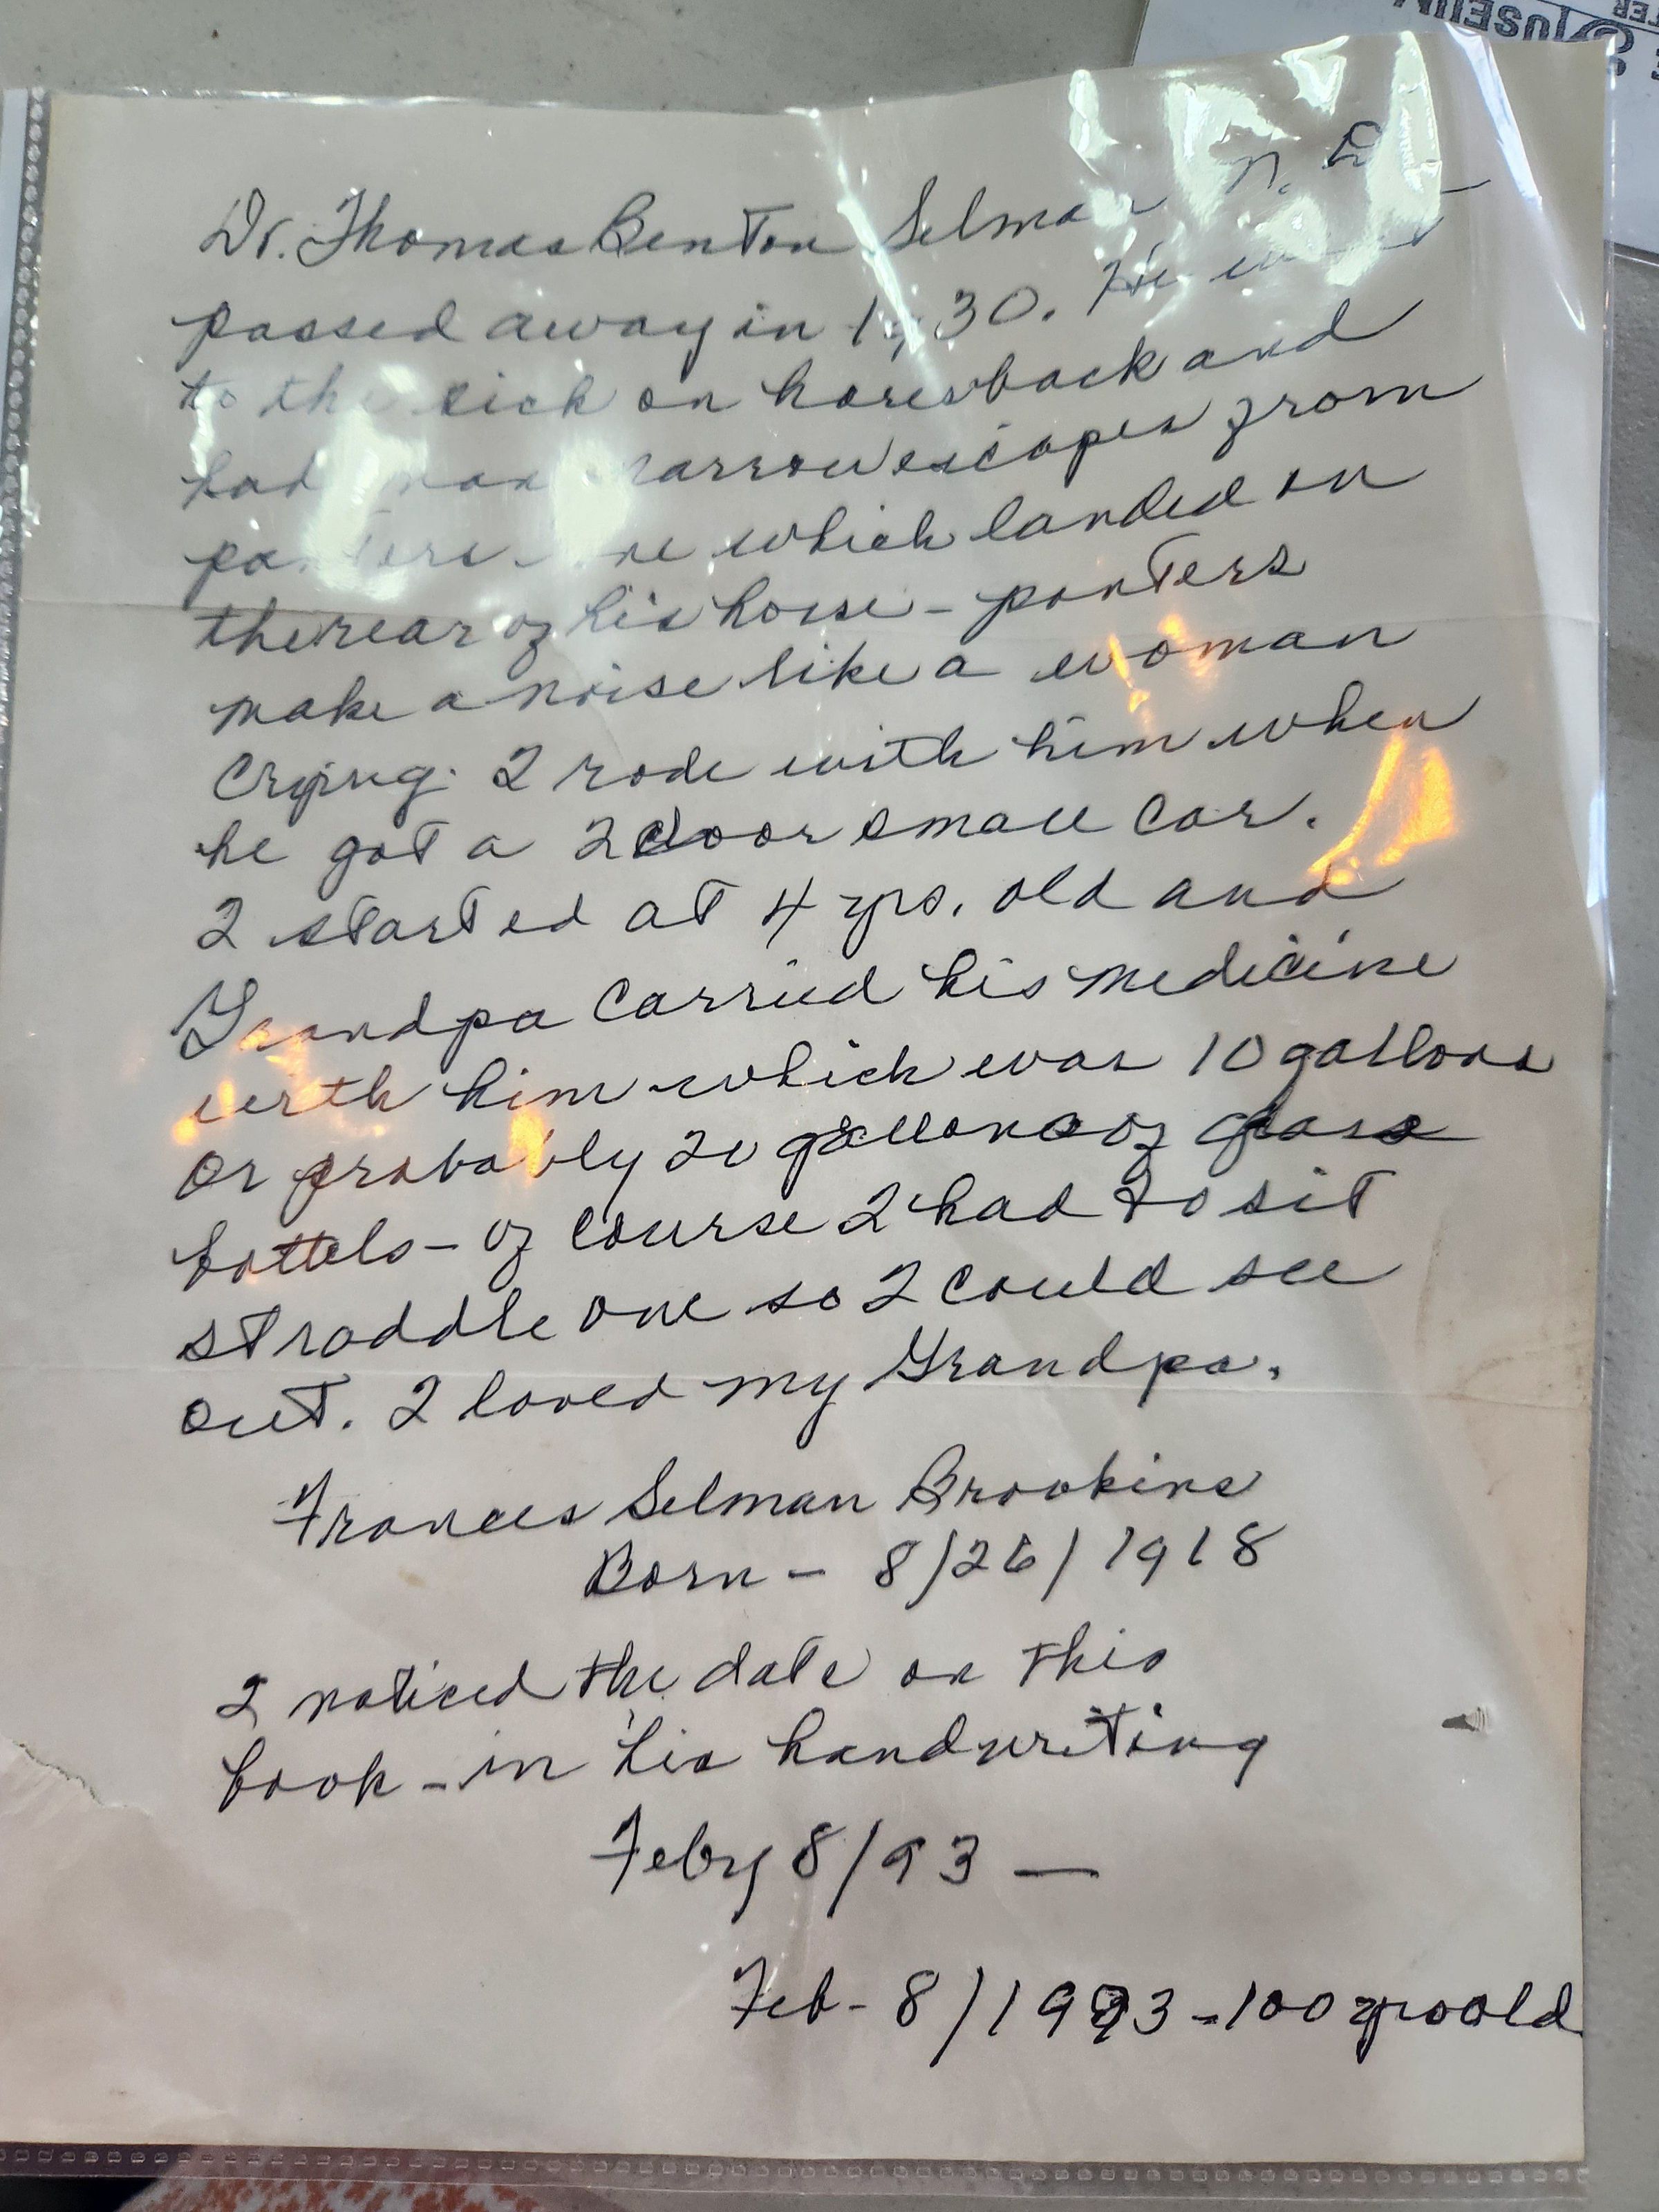 MUSEUM
Dr. Thomas Benton Selman
passed away in 1930. He went
to the sick on horesback and
had narrow escapes from
which landed on
the rear of his horse - panters
make a noise like a woman
Crying. I rode with him when
he got a 2 door small car.
I started at 4 yrs. old and
Grandpa carried his medicine
with him which was 10 gallons
or probably 20 gallons of glass
bottels - of course I had to sit
straddle one so I could see
out. I loved my Grandpa.
Frances Selman Brookins
Born - 8/26/1918
I noticed the date on this
book - in his handwriting
Feby 8/93 —
Feb - 8/1993 - 100 yrs old